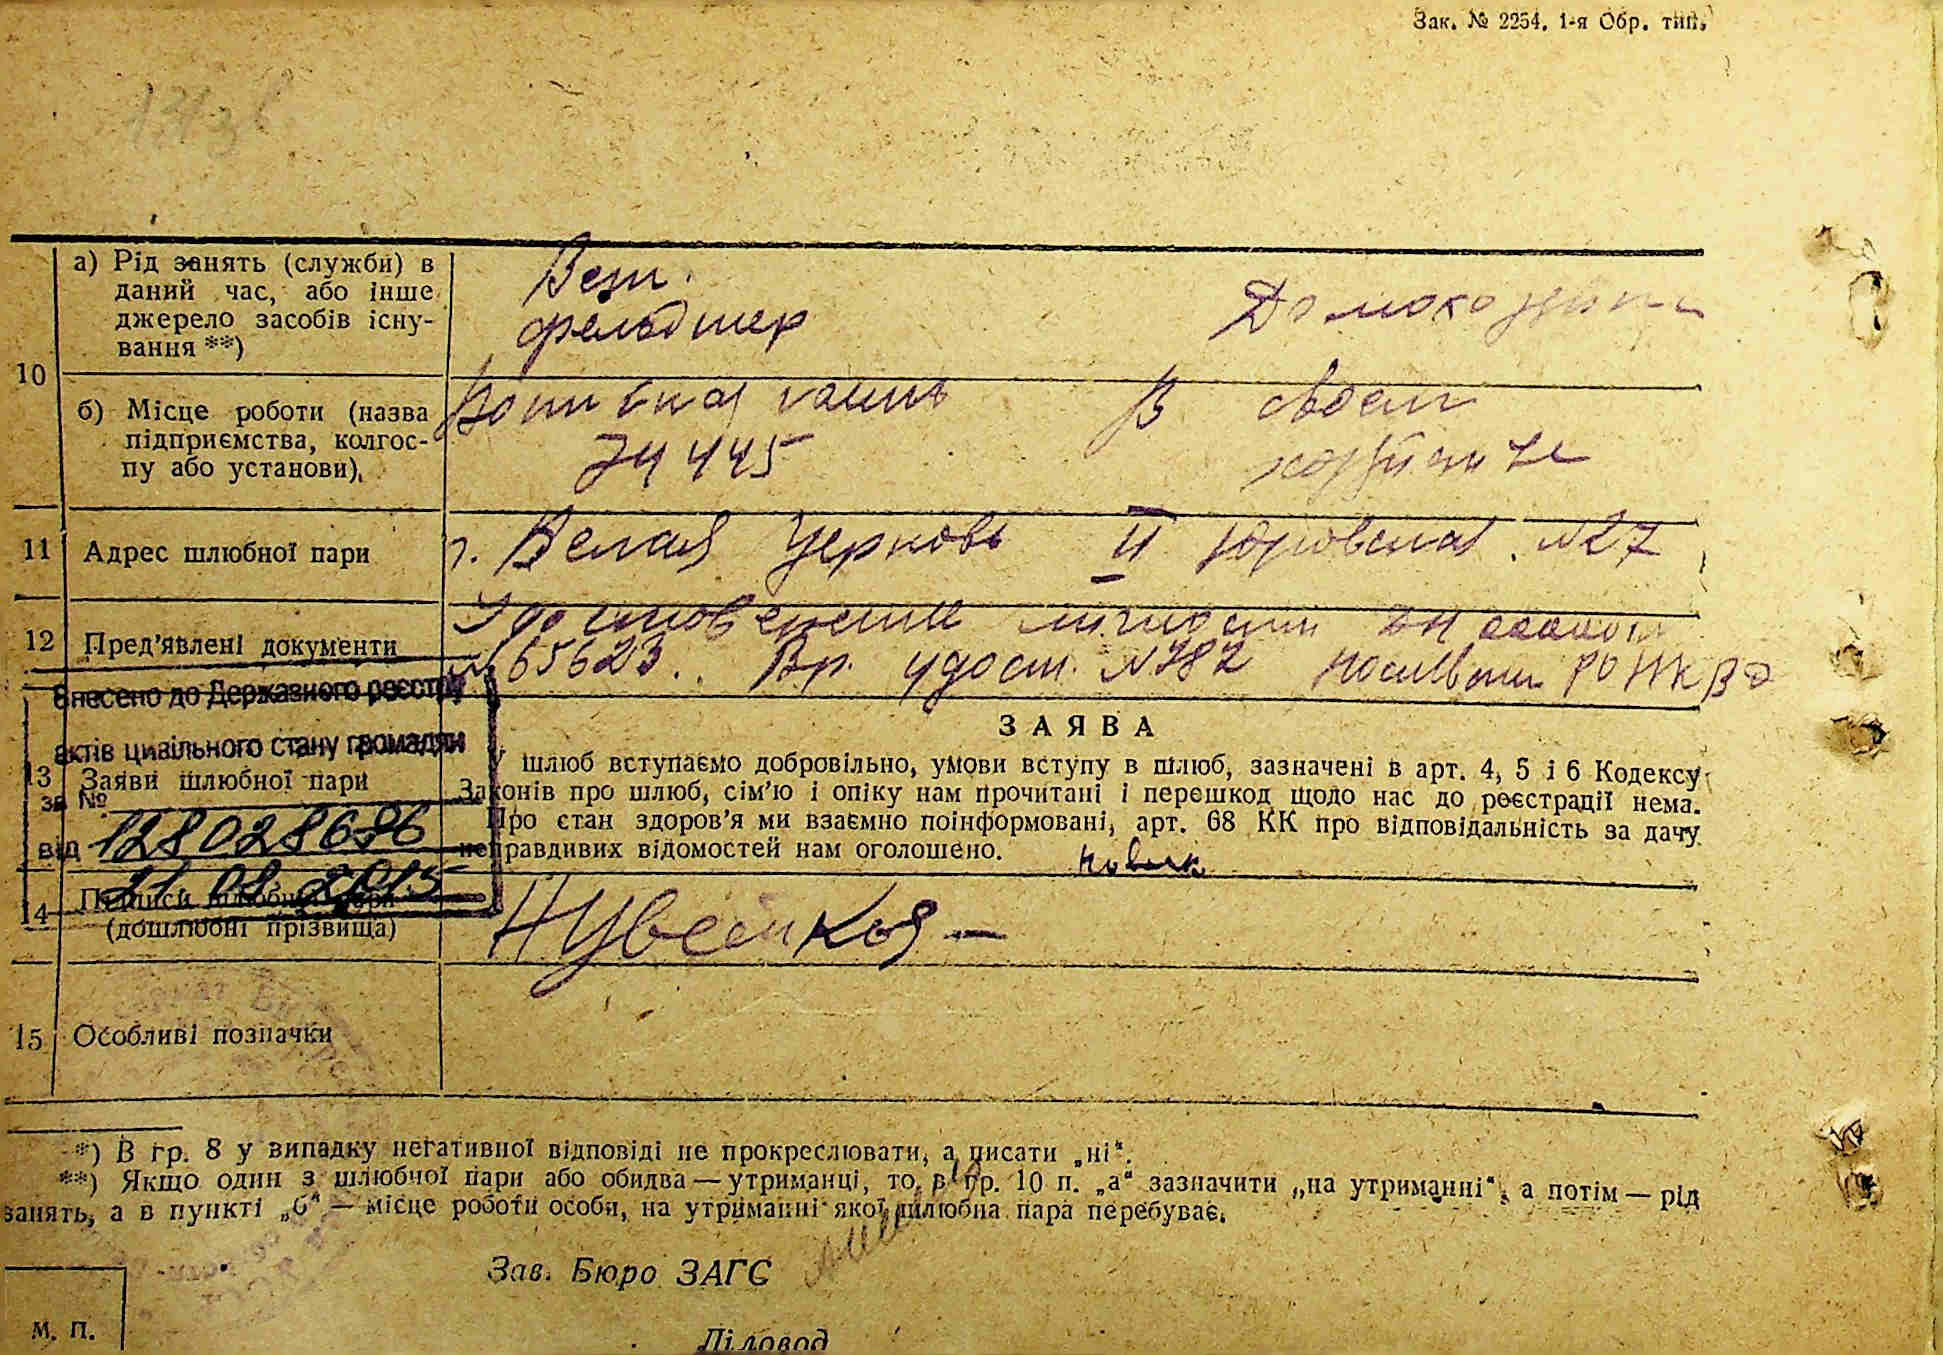 Зак. № 2254. 1-я Обр. тип.
а) Рід занять (служби) в
даний час, або інше
джерело засобів існу-
вання **)
Вет.
фельдшер
Домохозяйка
10
б) Місце роботи (назва
підприємства, колгос-
пу або установи),
Воинская часть
74445
В своем
хозяйстве
11 Адрес шлюбної пари
г. Белая Церковь II № 27
12 Пред'явлені документи
Удостоверение личности
№ 65623. Вр. удост. № 782
Внесено до Державного реєстру
актів цивільного стану громадян
за №
128028696
від 21.01.2015
ЗАЯВА
13 Заяви шлюбної пари
У шлюб вступаємо добровільно, умови вступу в шлюб, зазначені в арт. 4, 5 і 6 Кодексу
Законів про шлюб, сім'ю і опіку нам прочитані і перешкод щодо нас до реєстрації нема.
Про стан здоров'я ми взаємно поінформовані, арт. 68 КК про відповідальність за дачу
неправдивих відомостей нам оголошено.
14 Підписи шлюбної пари
(дошлюбні прізвища)
Новик
15 Особливі позначки
*) В гр. 8 у випадку негативної відповіді не прокреслювати, а писати „ні“.
**) Якщо один з шлюбної пари або обидва — утриманці, то в гр. 10 п. „а“ зазначити „на утриманні“, а потім — рід
занять, а в пункті „б“ — місце роботи особи, на утриманні якої шлюбна пара перебуває.
Зав. Бюро ЗАГС
М. П.
Діловод